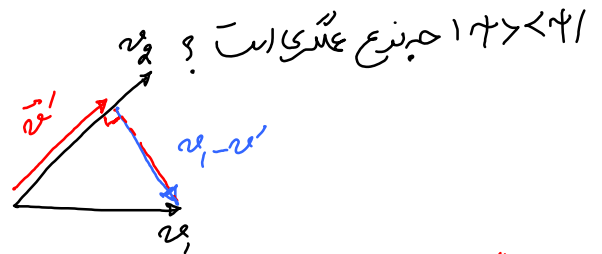 |ψ><ψ| چه نوع عملگری است ؟
v₂
v⃗'
v₁ - v'
v₁